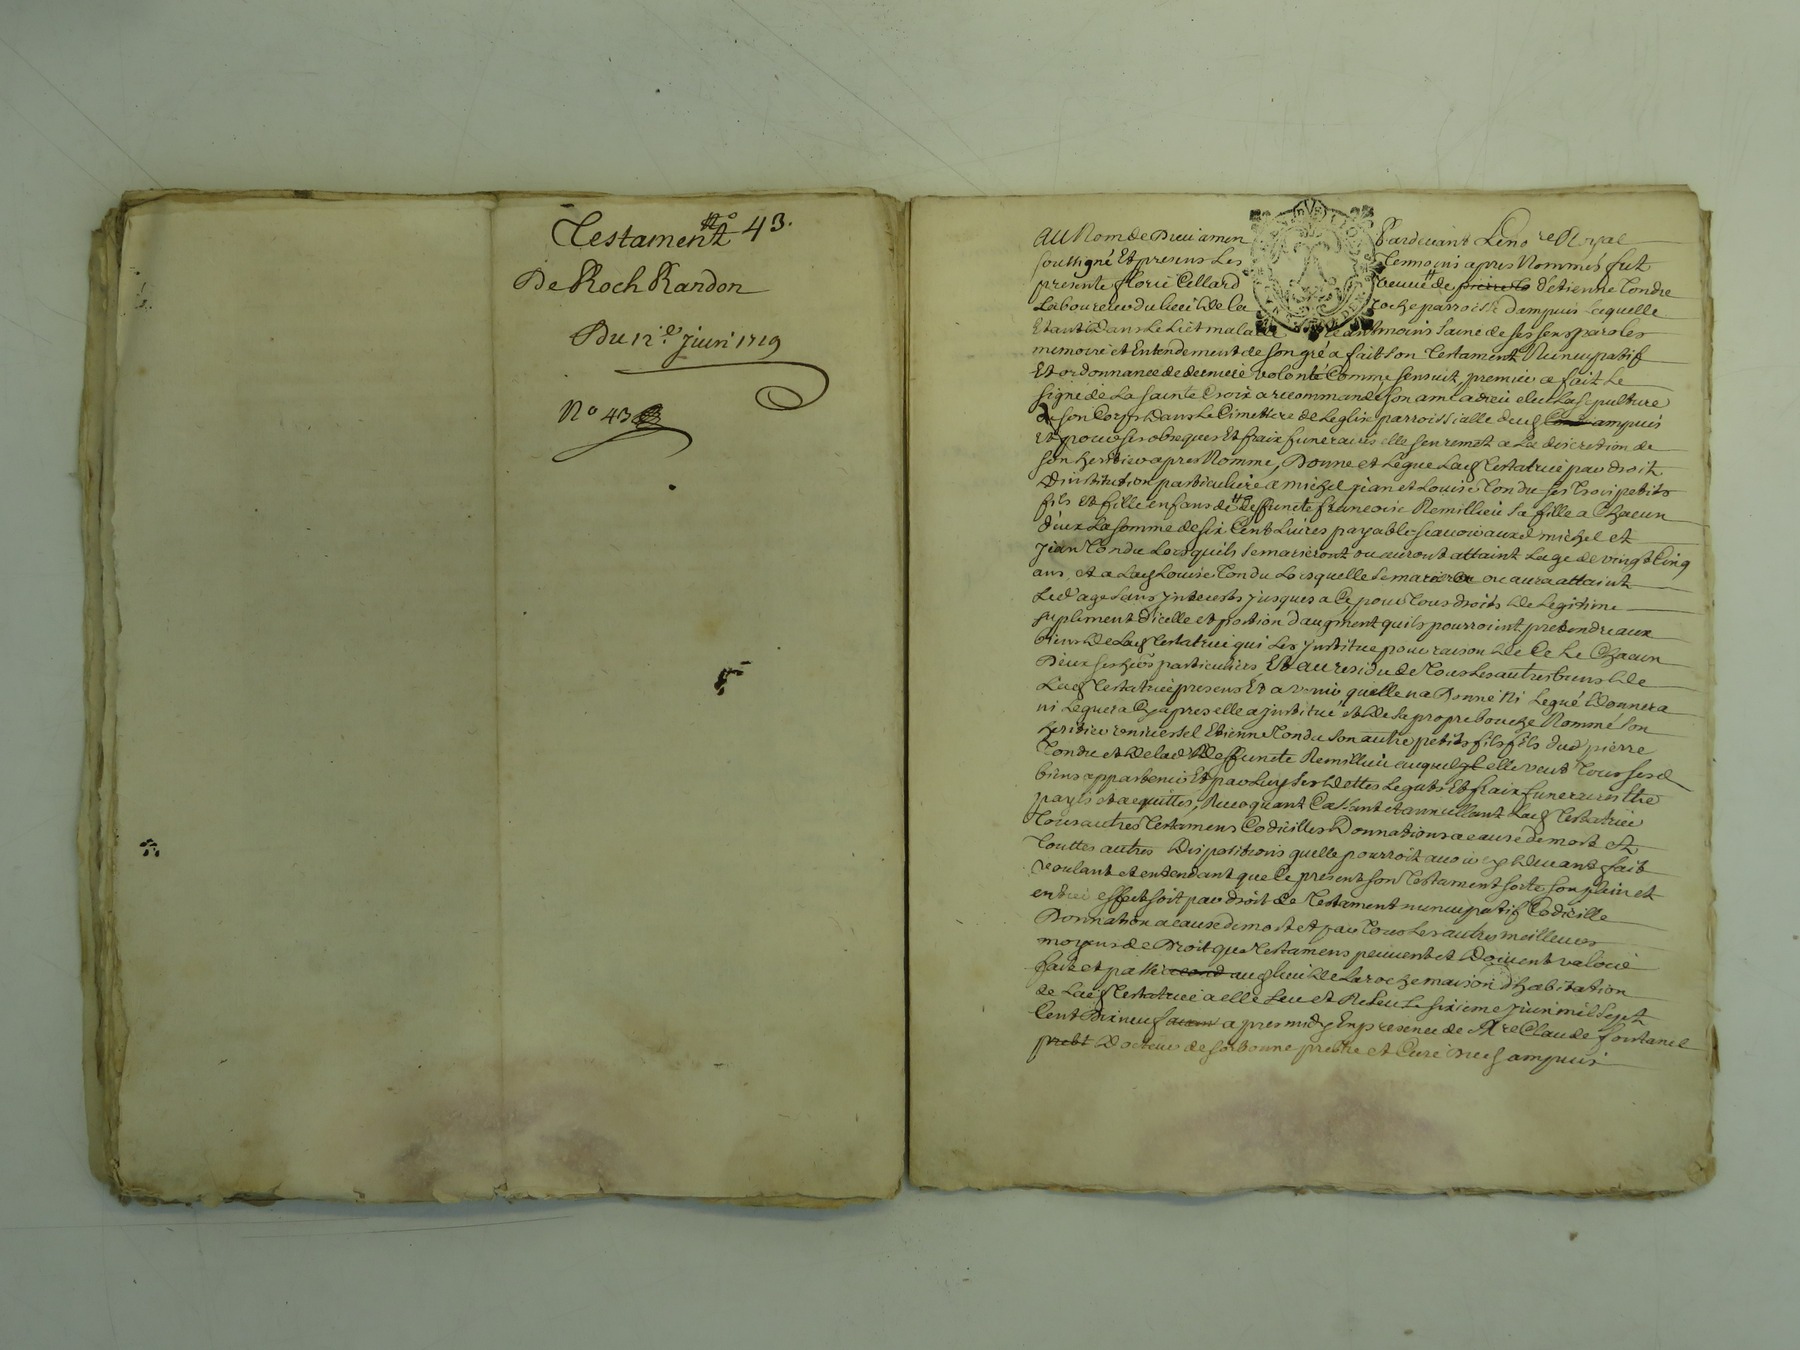 No 43.
Testament
De Roch Randon
Du 12.e Juin 1719
No 43
AU Nom de Dieu amen Pardevant Le no re Royal
soussigné Et presens Les Temoins apres Nommés fut
presente florie Cellard veuve de pierre d'etienne Tondu
Laboureur du lieu de la roche parroisse Dampuis Laquelle
Etant Dans Le Lict malade neantmoins Saine de ses sens paroles
memoire et Entendement de son gré a fait son Testament Nuncupatif
Et ordonnance de derniere volonté Comme sensuit, premier a fait le
signe de La sainte Croix a recommandé son ame a dieu elu La sepulture
de son Corps Dans Le Cimettere de Leglise parroissialle dud ampuis
Et pour ses obseques Et fraix funeraires elle sen remet a La discretion de
son heritier apres Nommé, Donne et Legue Lad Testatrice par droit
Dinstitution particuliere a michel jean et Louise Tondu ses Trois petits
fils Et fille enfans de deffuncte francoise Remillieu sa fille a Chacun
d'eux La somme de six Cent Livres payable scavoir auxd michel et
jean Tondu Lorsquils se marieront ou auront attaint Lage de vingt Cinq
ans, et a Lad Louise Tondu Lorsquelle se mariera ou aura attaint
Led age sans jnterests jusques a Ce pour Tous droits de Legitime
supliment dicelle et portion d'augment quils pourroint pretendre aux
biens de Lad Testatrice qui Les jnstitue pour raison de Ce Le Chacun
Deux ses hers particuliers Et au residu de Tous Les autres biens de
Lad Testatrice presens Et a venir quelle na Donné Ni Legué Donnera
ni Leguera Cy apres elle a jnstitué et de sa propre bouche Nommé son
heritier universel Etienne Tondu son autre petits fils fils dud pierre
Tondu et de lad deffuncte Remillieu auquel elle veut Tous sesd
biens appartenir Et par Luy ses dettes Legats Et fraix funeraires Etre
payés et acquittes, Revoquant Cassant et annullant Lad Testatrice
Tous autres Testamens Codicilles Donnations a cause de mort et
Touttes autres Dispositions quelle pourroit avoir cy devant fait
voulant et entendant que Ce present son Testament sorte son plein et
entier effect soit par droit de Testament nuncupatif Codicille
Donnation a cause de mort et par Tous Les autres meilleurs
moyens de Droit que Testamens peuvent et Doivent valoir
fait et passé aud lieu de Laroche maison d'habitation
de Lad Testatrice a elle Leu et Releu Le sixieme juin mil Sept
Cent Dix neuf apres midy En presence de Mre Claude fontanel
prebt Docteur de sorbonne prebtre et Curé dud ampuis